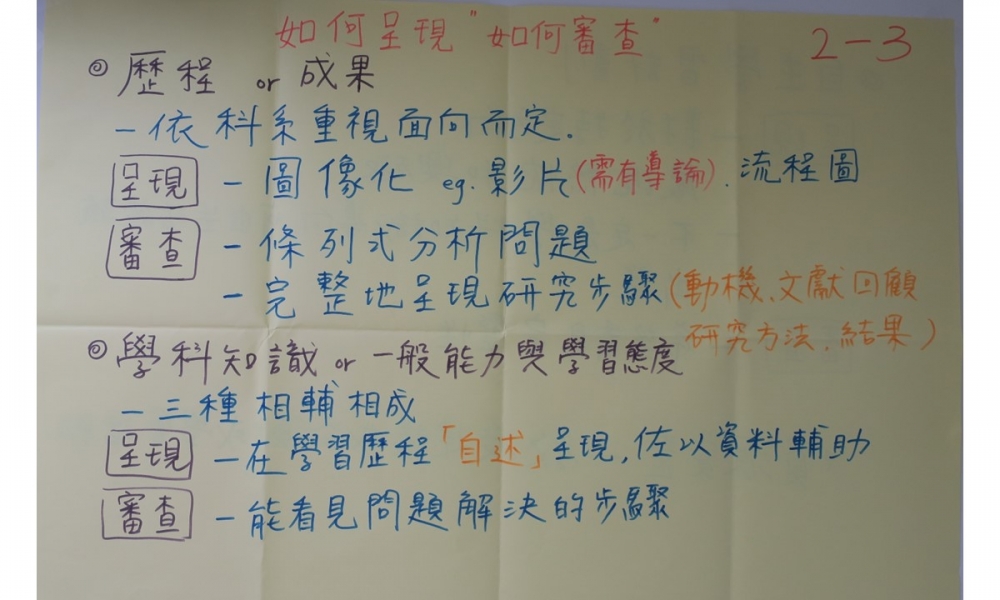 如何呈現"如何審查" 2-3
◎ 歷程 or 成果
- 依科系重視面向而定.
呈現 - 圖像化 eg. 影片(需有導論). 流程圖
審查 - 條列式分析問題
- 完整地呈現研究步驟(動機、文獻回顧
研究方法、結果)
◎ 學科知識 or 一般能力與學習態度
- 三種相輔相成
呈現 - 在學習歷程「自述」呈現, 佐以資料輔助
審查 - 能看見問題解決的步驟